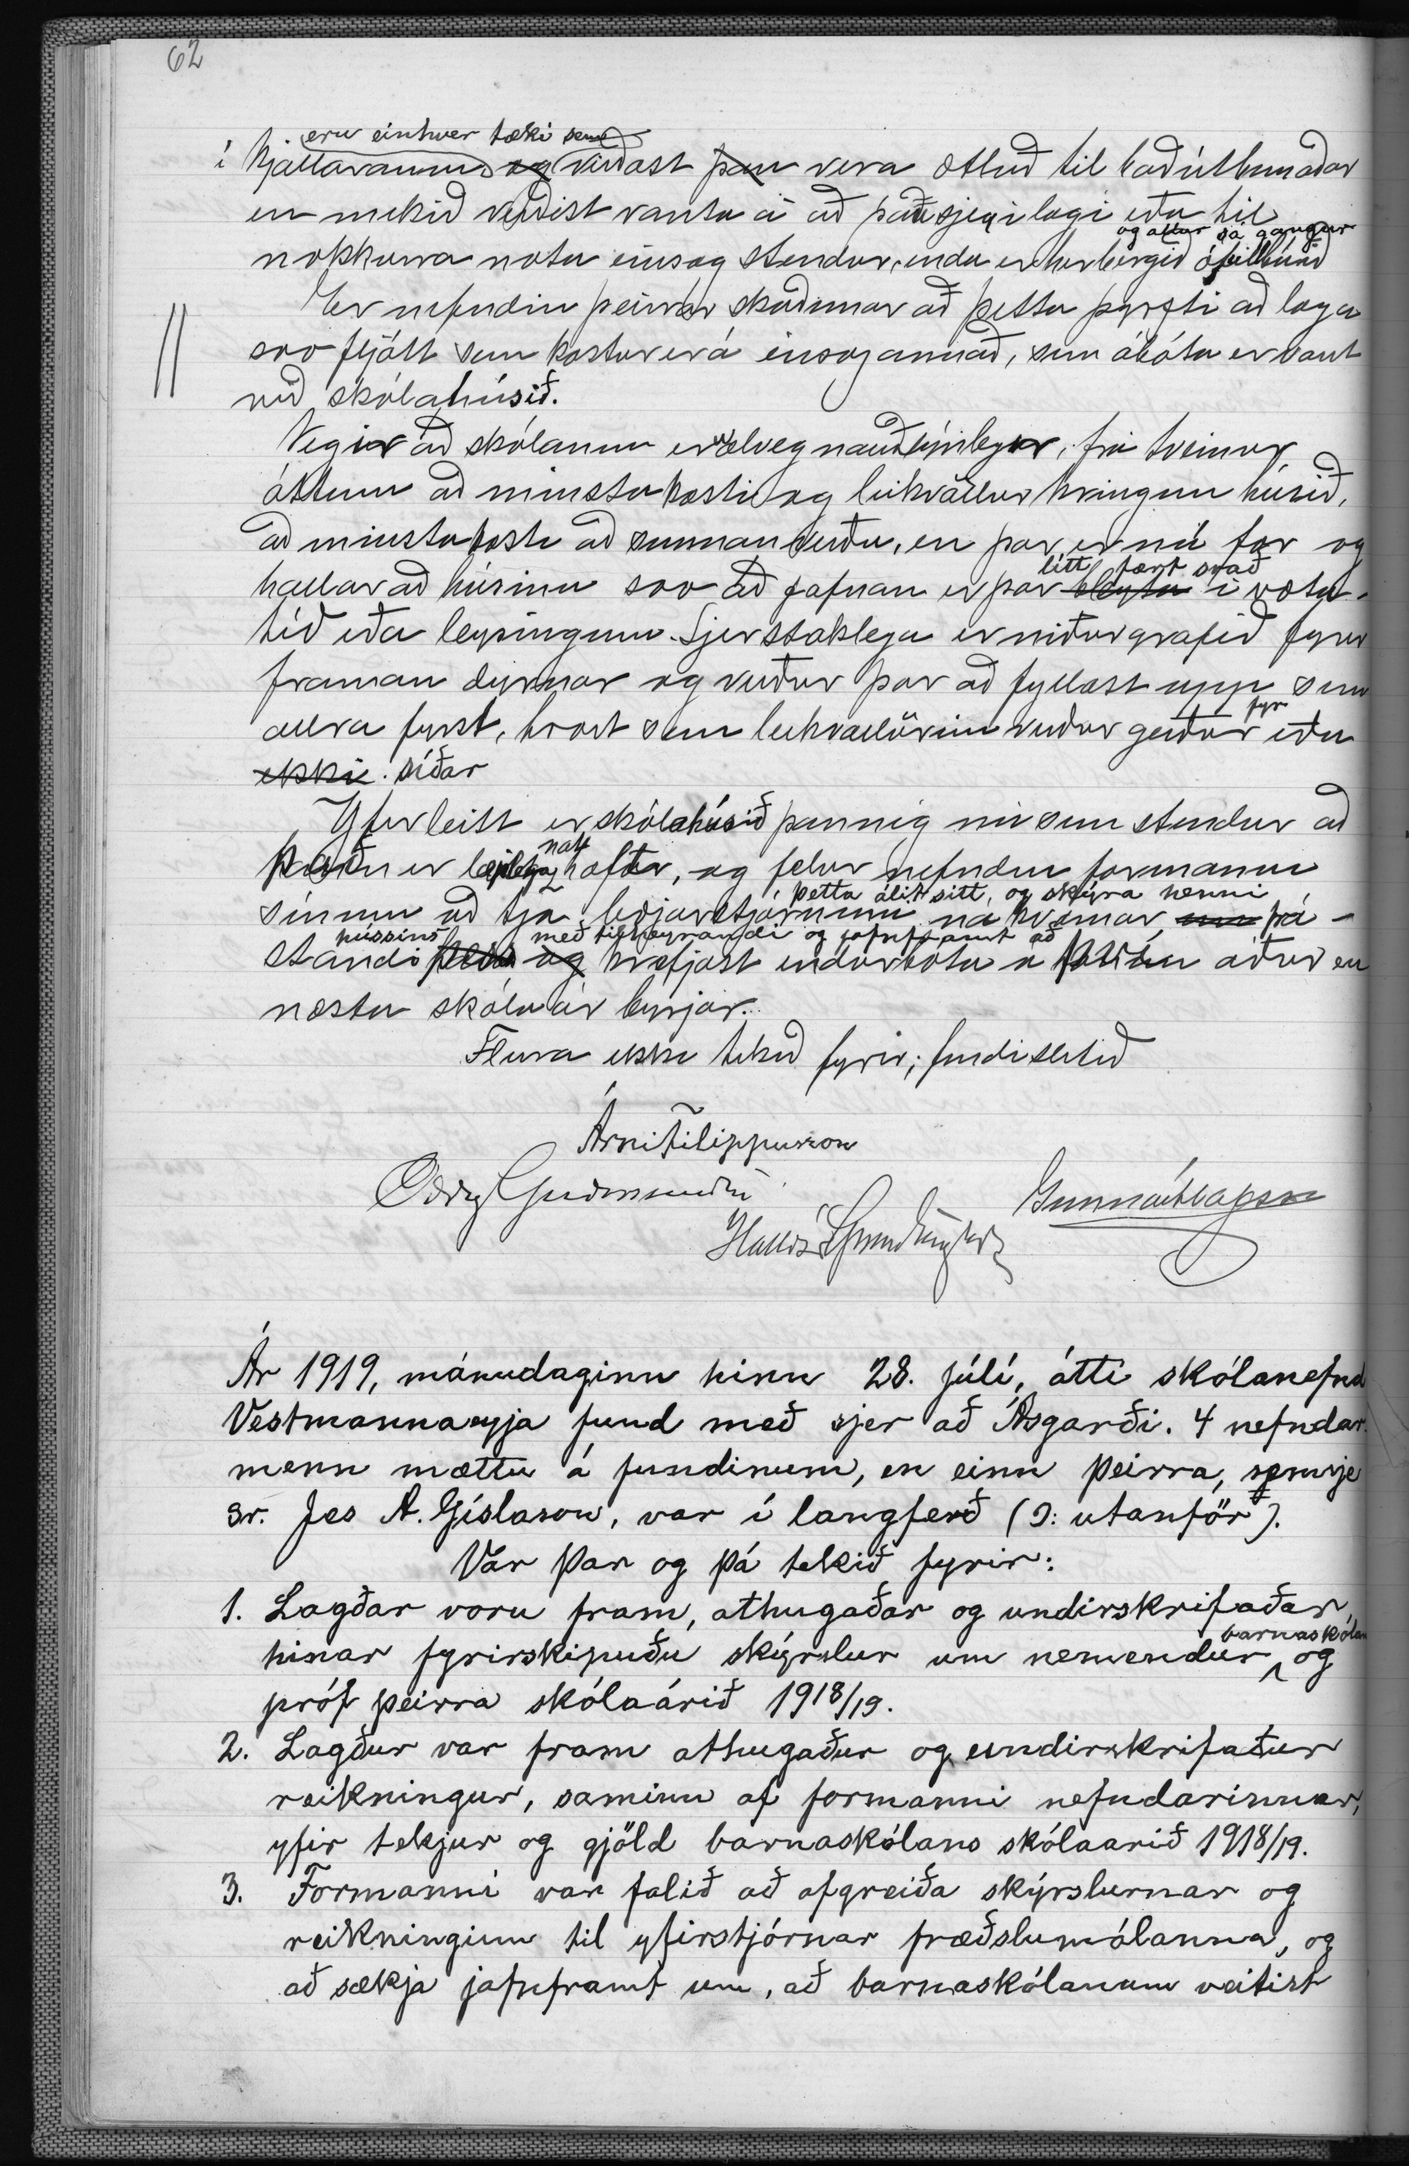 62
eru einhver tæki sem
í kjallaranum og virðast þau vera ætluð til baðútbúnaðar
en mikið virðist vanta á að það sje í lagi eða til
og allur sá gangur
nokkurra nota eins og stendur, enda er herbergið ófullbúið
Er nefndin þeirrar skoðunar að þetta þyrfti að laga
svo fljótt sem kostur er á eins og annað, sem ábóta er vant
við skólahúsið.
Vegir að skólanum eru alveg nauðsynlegir, frá tveimur
áttum að minsta kosti og leikvöllur kringum húsið,
að minsta kosti að sunnanverðu, en þar er nú for og
litt fært svað
hallar að húsinu svo að jafnan er þar bleyta í vætu-
tíð eða leysingum. Sjerstaklega er niðurgrafið fyrir
framan dyrnar og verður þar að fyllast upp sem
fyr
allra fyrst, hvort sem leikvöllurinn verður gerður eða
ekki. síðar
Yfirleitt er skólahúsið þannig nú sem stendur að
það er hafter, og felur nefndin formanni
þetta álit sitt, og skýra henni
sínum að tjá bæjarstjórninni nákvæmar frá á-
hússins með tilheyrandi og jafnframt að
standi þess og krefjast endurbóta á því áður en
næsta skólaár byrjar.
Fleira ekki tekið fyrir; fundi slitið
Árni Filippusson
Oddg Guðmundss
Gunnar Ólafsson
Halldór Gunnlaugsson
Ár 1919, mánudaginn hinn 28. júlí, átti skólanefnd
Vestmannaeyja fund með sjer að Ásgarði. 4 nefndar
menn mættu á fundinum, en einn þeirra, sem sje
sr. Jes A. Gíslason, var í langferð (ɔ: utanför).
Var þar og þá tekið fyrir:
1. Lagðar voru fram, athugaðar og undirskrifaðar,
barnaskólans
hinar fyrirskipuðu skýrslur um nemendur og
próf þeirra skólaárið 1918/19.
2. Lagður var fram athugaður og undirskrifaður
reikningur, saminn af formanni nefndarinnar,
yfir tekjur og gjöld barnaskólans skólaarið 1918/19.
3. Formanni var falið að afgreiða skýrslurnar og
reikninginn til yfirstjórnar fræðslumálanna, og
að sækja jafnframt um, að barnaskólanum veitist